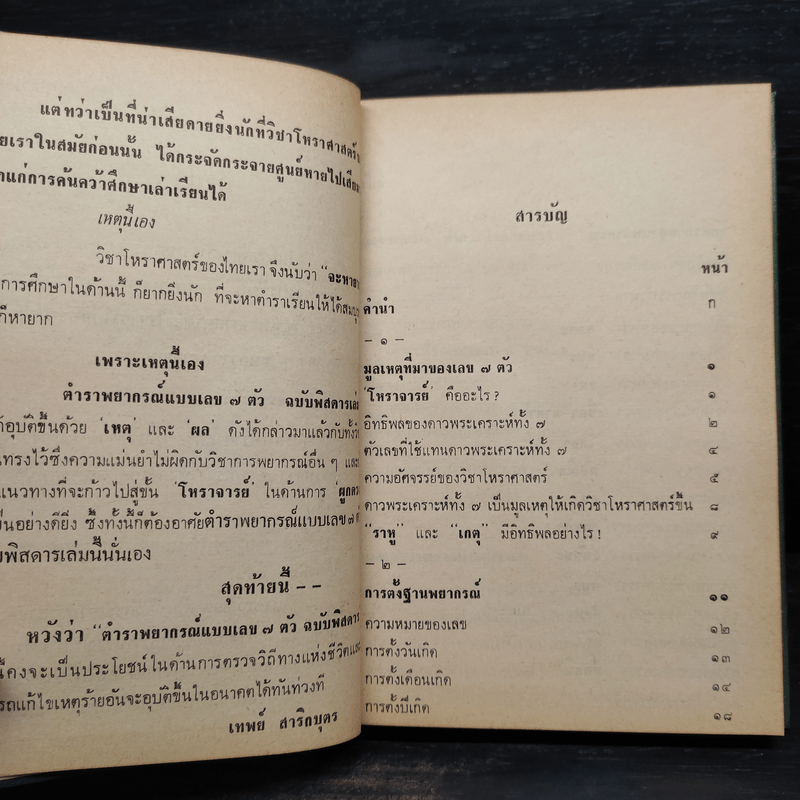 แต่ทว่าเป็นที่น่าเสียดายยิ่งนักที่วิชาโหราศาสตร์
ยเราในสมัยก่อนนั้น ได้กระจัดกระจายศูนย์หายไปเสีย
แก่การค้นคว้าศึกษาเล่าเรียนได้
เหตุนี้เอง
วิชาโหราศาสตร์ของไทยเรา จึงนับว่า "จะหา
การศึกษาในด้านนี้ ก็ยากยิ่งนัก ที่จะหาตำราเรียนให้ได้สมบู
ก็หายาก
เพราะเหตุนี้เอง
ตำราพยากรณ์แบบเลข ๗ ตัว ฉบับพิสดารเล่ม
อุบัติขึ้นด้วย 'เหตุ' และ 'ผล' ดังได้กล่าวมาแล้วกับทั้ง
ทรงไว้ซึ่งความแม่นยำไม่ผิดกับวิชาการพยากรณ์อื่น ๆ และ
แนวทางที่จะก้าวไปสู่ขั้น 'โหราจารย์' ในด้านการ 'ผูกดวง
ป็นอย่างดียิ่ง ซึ่งทั้งนี้ก็ต้องอาศัยตำราพยากรณ์แบบเลข ๗ ตั
บพิสดารเล่มนี้นั่นเอง
สุดท้ายนี้ – –
หวังว่า "ตำราพยากรณ์แบบเลข ๗ ตัว ฉบับพิสดาร
นี้คงจะเป็นประโยชน์ในด้านการตรวจวิถีทางแห่งชีวิตและ
รถแก้ไขเหตุร้ายอันจะอุบัติขึ้นในอนาคตได้ทันท่วงที
เทพย์ สาริกบุตร
สารบัญ
หน้า
คำนำ ก
– ๑ –
มูลเหตุที่มาของเลข ๗ ตัว ๑
'โหราจารย์' คืออะไร ? ๑
อิทธิพลของดาวพระเคราะห์ทั้ง ๗ ๒
ตัวเลขที่ใช้แทนดาวพระเคราะห์ทั้ง ๗ ๔
ความอัศจรรย์ของวิชาโหราศาสตร์ ๕
ดาวพระเคราะห์ทั้ง ๗ เป็นมูลเหตุให้เกิดวิชาโหราศาสตร์ขึ้น ๘
"ราหู" และ "เกตุ" มีอิทธิพลอย่างไร ! ๙
– ๒ –
การตั้งฐานพยากรณ์ ๑๑
ความหมายของเลข ๑๒
การตั้งวันเกิด ๑๓
การตั้งเดือนเกิด ๑๔
การตั้งปีเกิด ๑๘